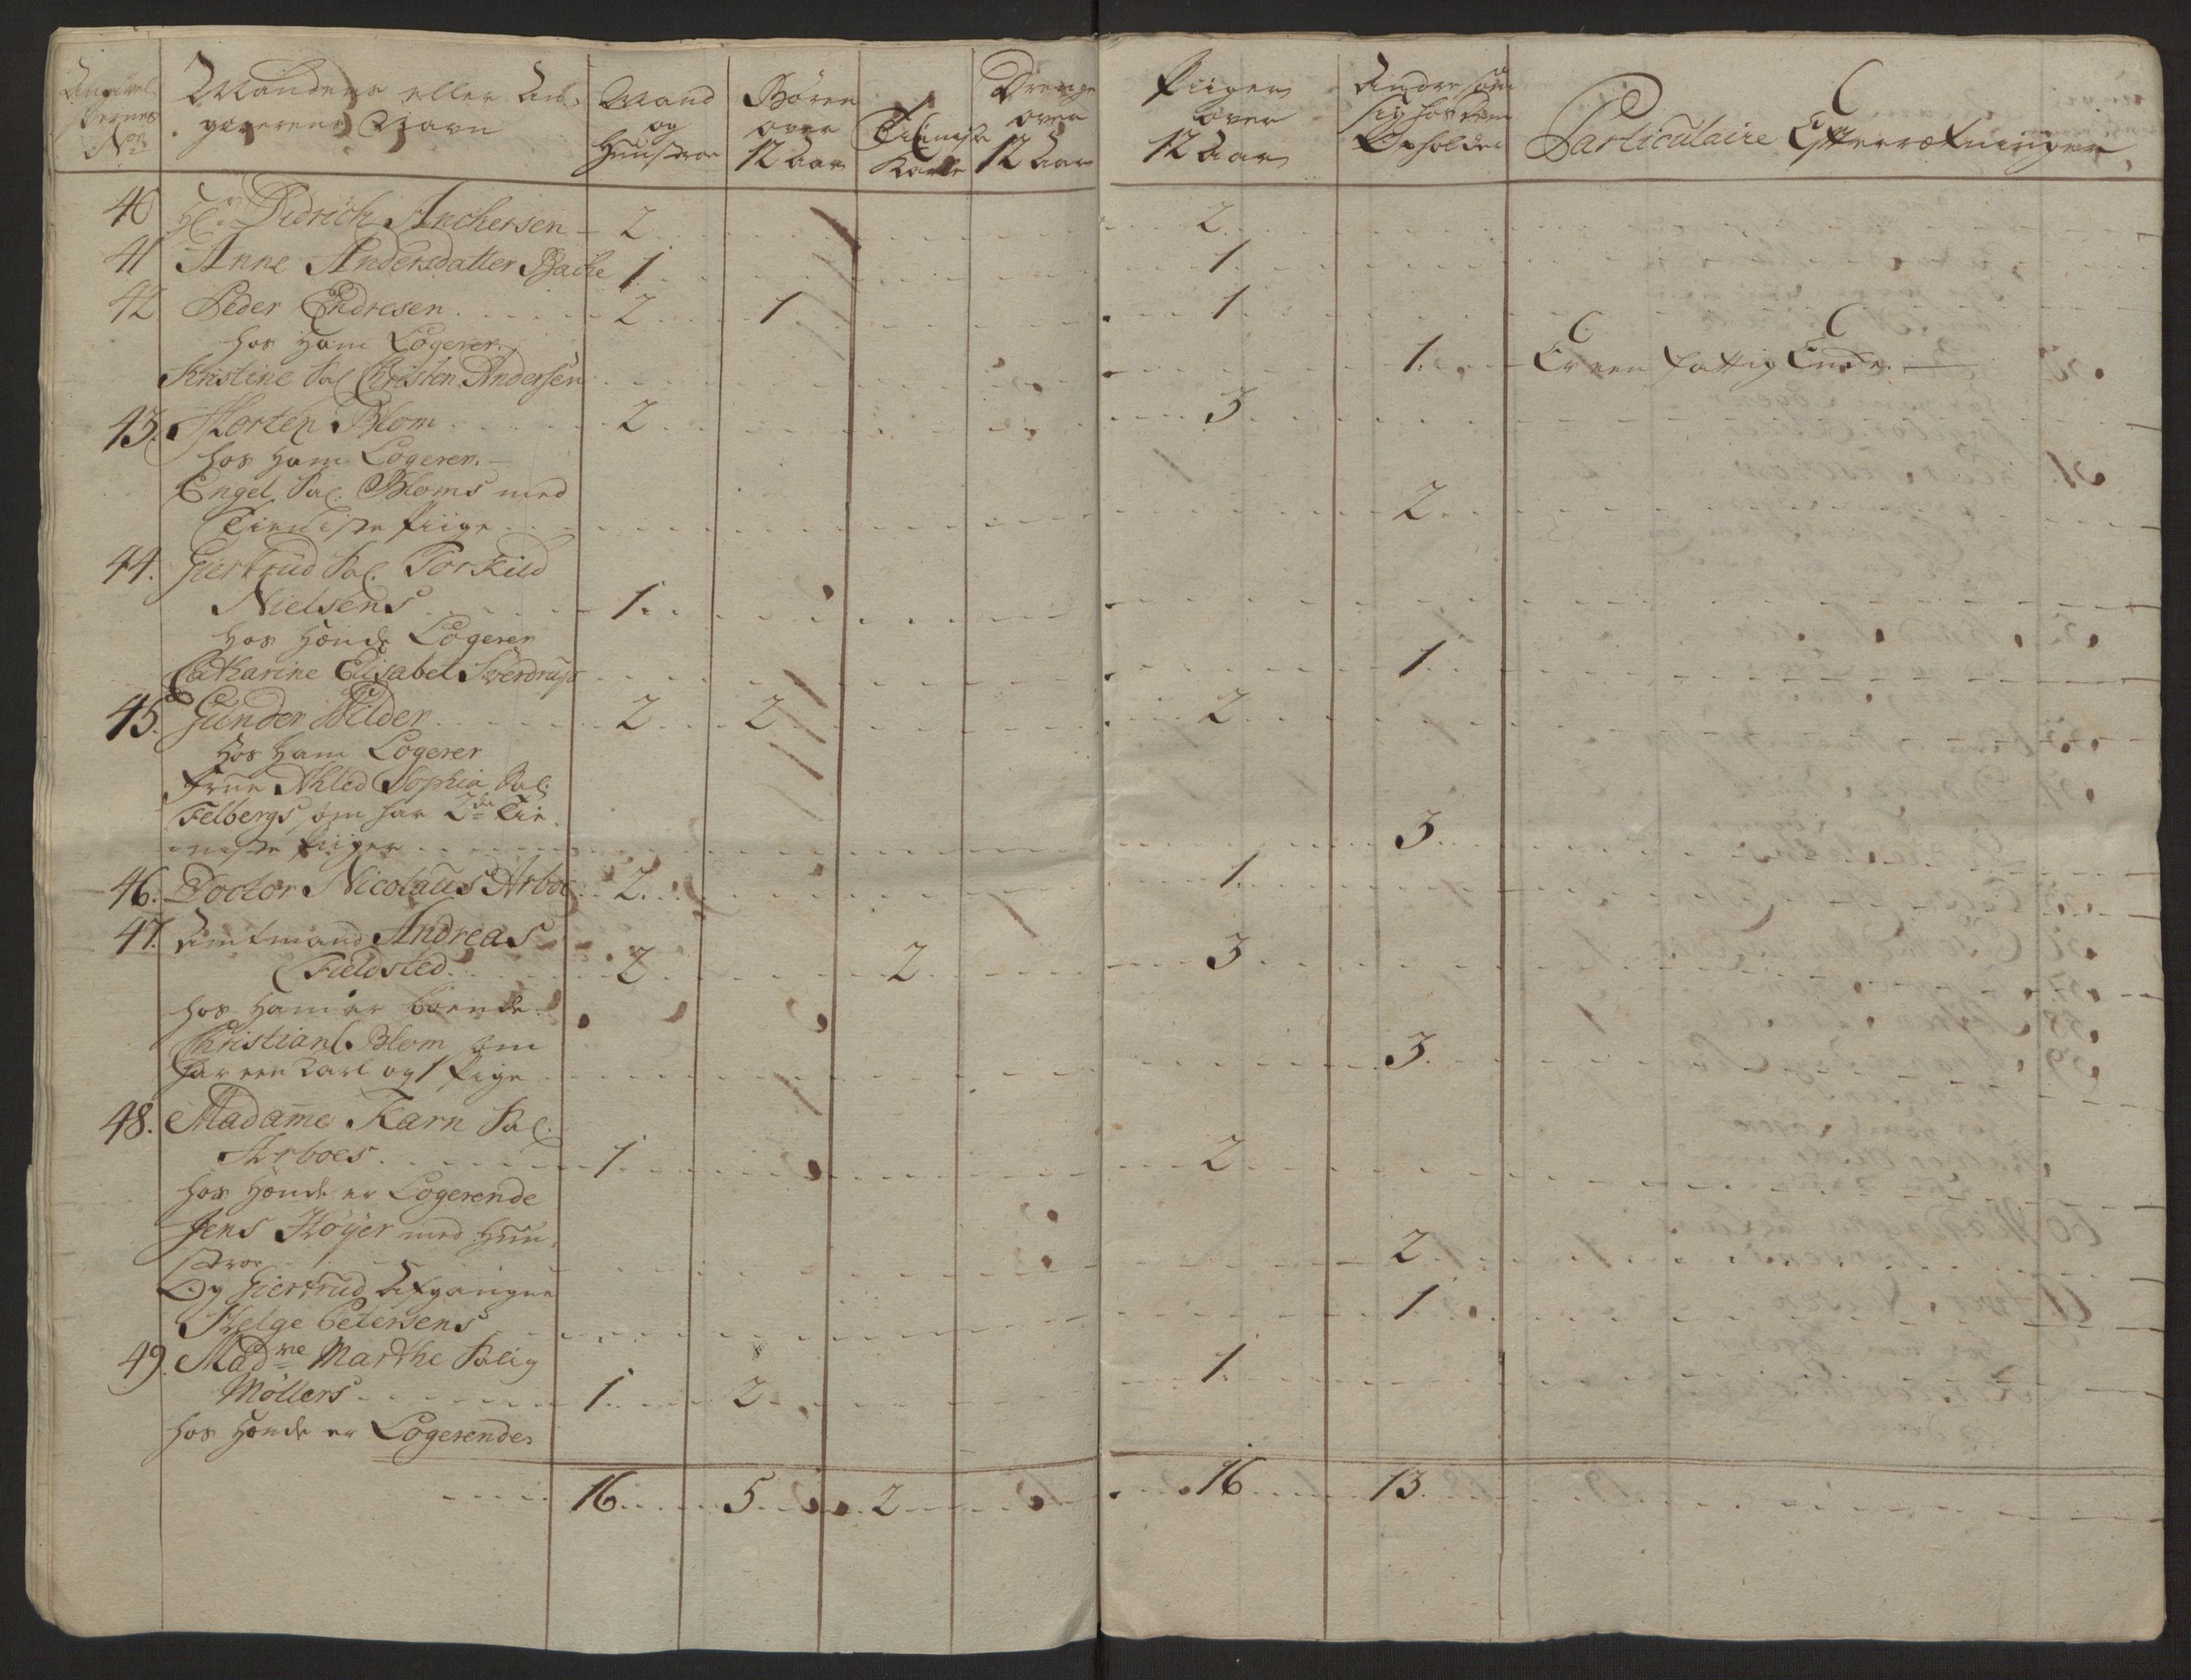 Angivel-
sernes
No
Mandens eller An-
giverens Navn
Mand
og
Hustroe
Børen
over
12 Aar
Tieniste
Karle
Drenge
over
12 Aar
Piiger
over
12 Aar
Andre som
sig hos dem
Opholder
Particulaire Efterretninger
40 Hr Didrich Anchersen 2 2
41 Anne Andersdatter Bache 1 1
42 Peder Endresen 2 1 1
hos Ham Logerer
Kristine Sal Christen Andersen 1. Er een fattig Encke
43. Morten Blom 2 3
hos Ham Logerer.
Engel Sal. Bloms med
Tieniste Piige 2
44. Giertrud Sal. Torkild
Nielsens 1.
hos Hende Logerer
Catharine Elisabet Sverdrups 1
45. Gunder Wilder 2 2 2
Hos Ham Logerer
Frue Ahled Sophia Sal.
Felbergs som har 2de Tie-
niste Piiger 3
46. Doctor Nicolaus Arboe 2. 1.
47. Amtmand Andreas
Fieldsted 2 2 3
hos Ham er boende
Christian Blom som
har een Karl og 1 Pige 3
48. Madame Karn Sal.
Arboes 1 2
hos Hende er Logerende
Jens Høyer med Huu-
stroe 2
Og Giertrud Afgangne
Helge Petersens 1
49. Madme Marthe Salig
Möllers 1 2 1
hos Hende er Logerende
16 5 2 16 13